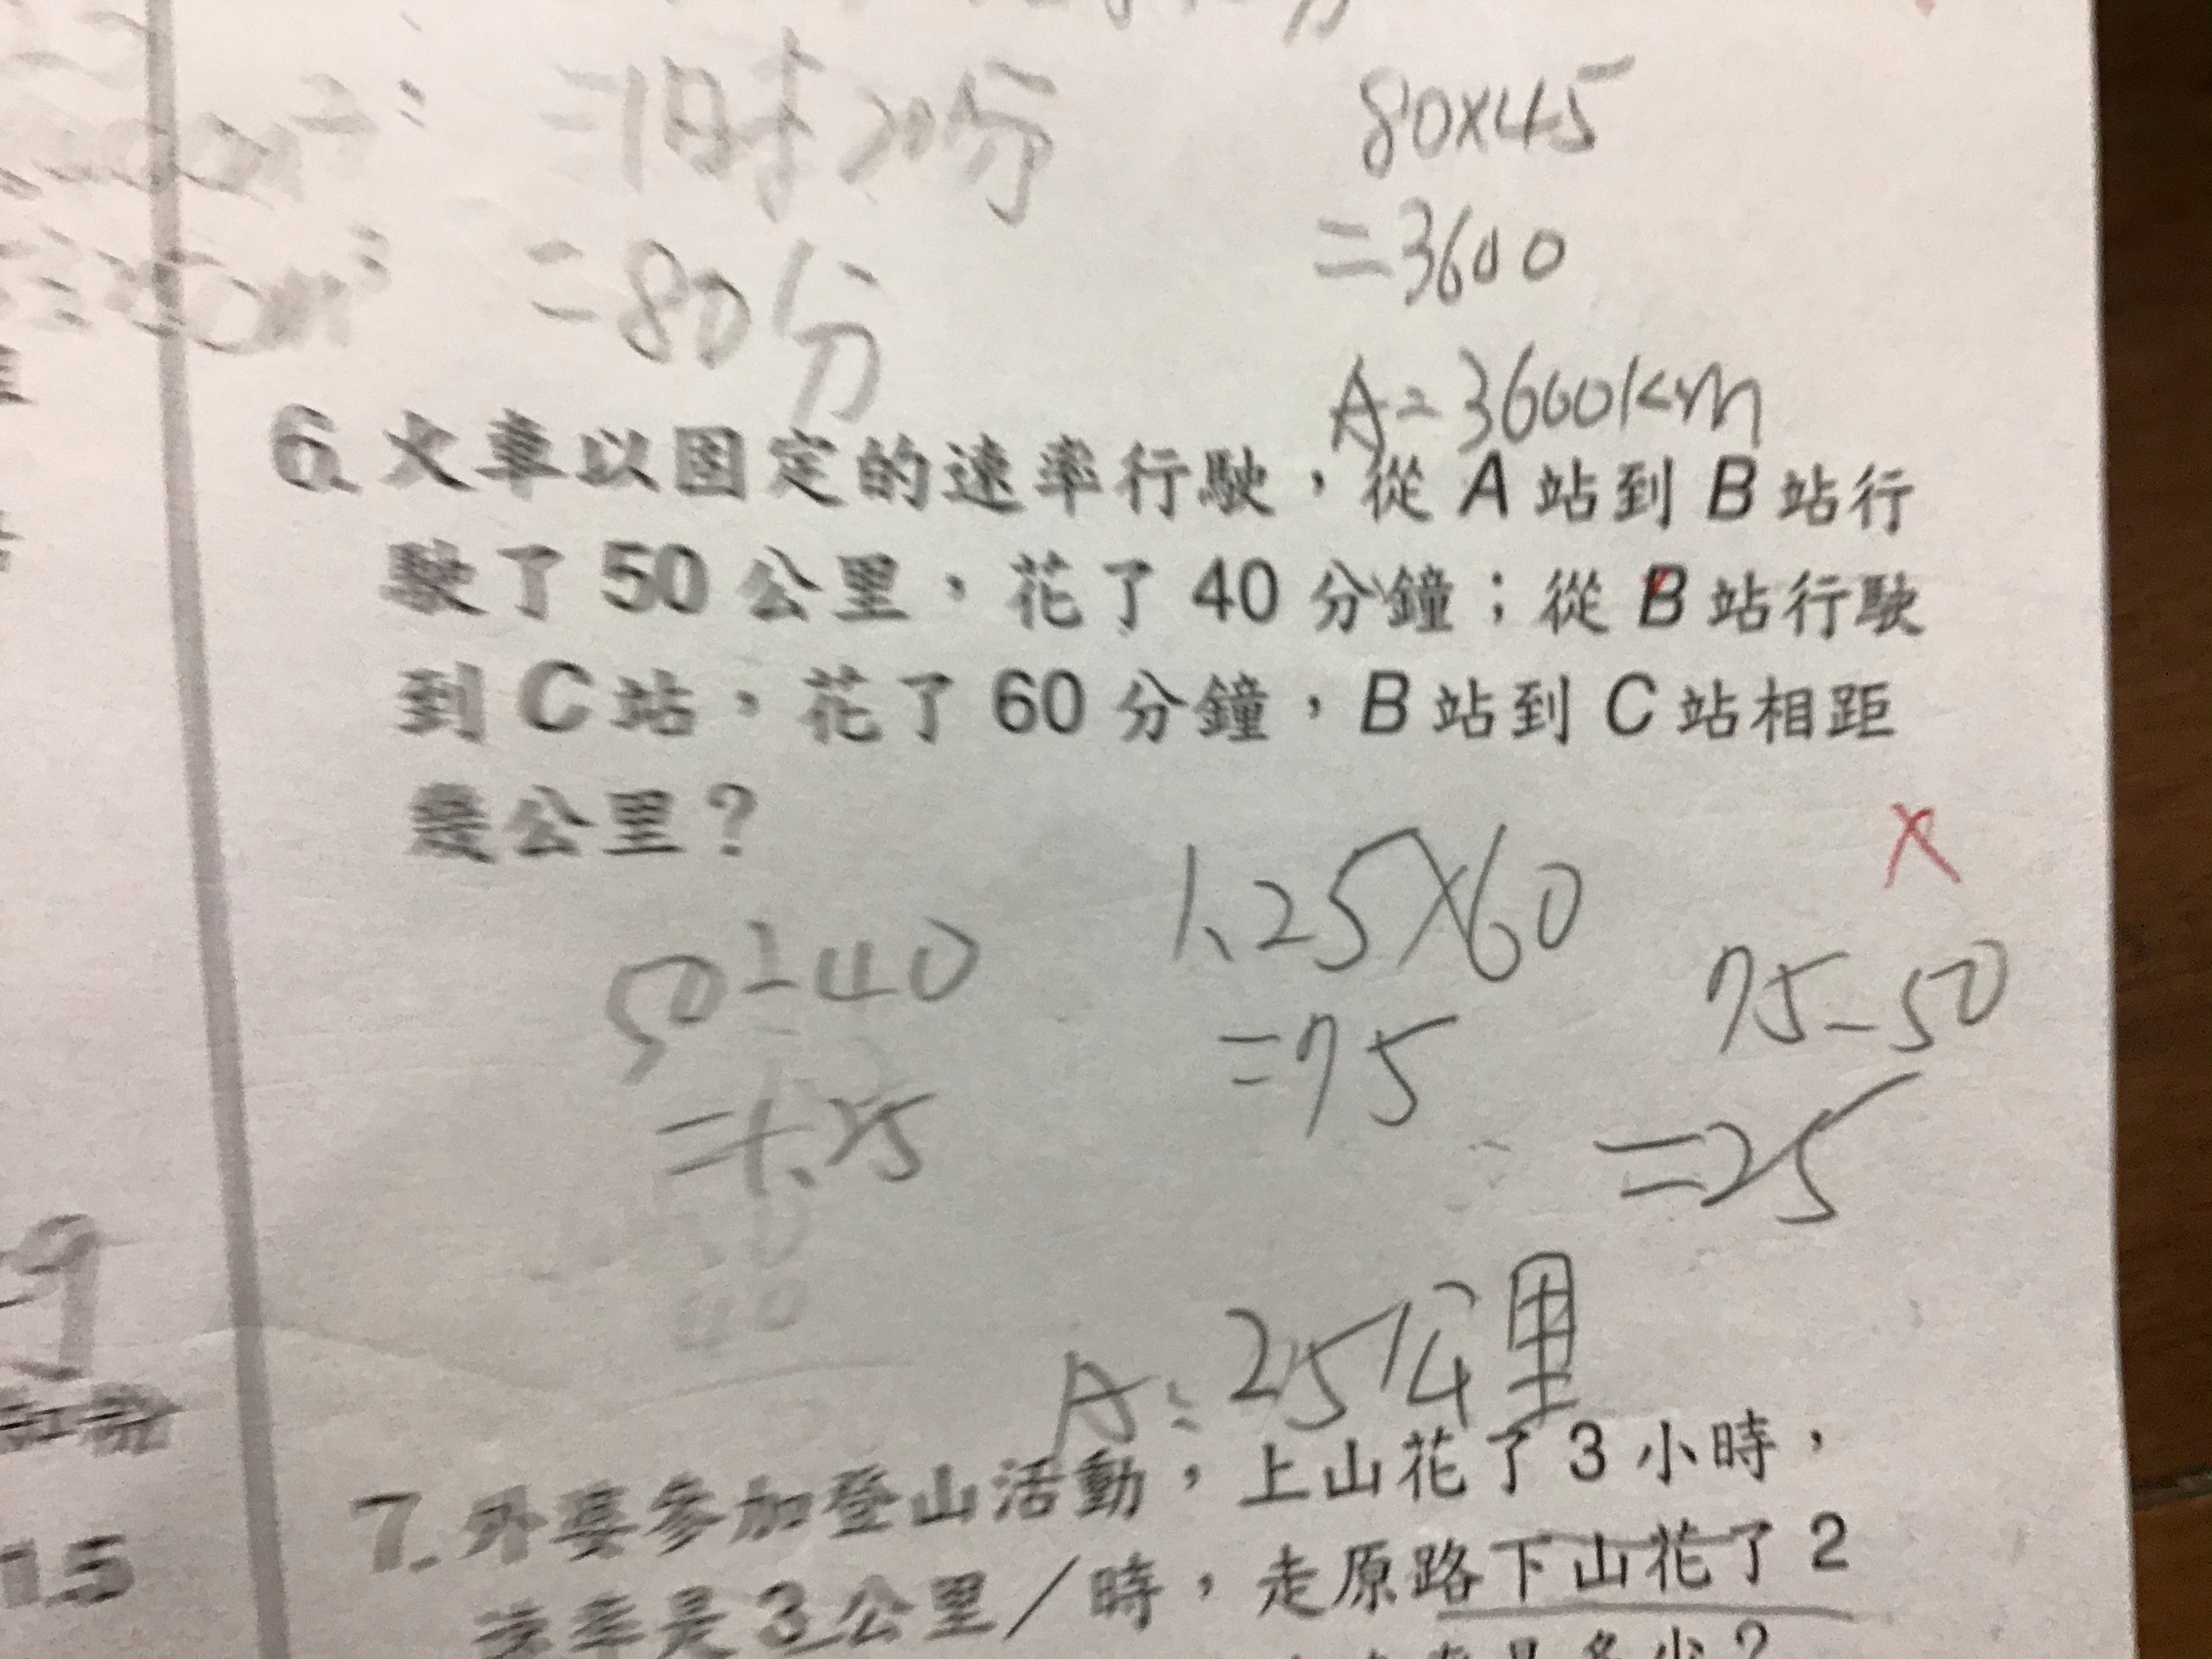 =1時20分
=80分
80×45
=3600
A=3600km
6. 火車以固定的速率行駛，從 A 站到 B 站行
駛了 50 公里，花了 40 分鐘；從 B 站行駛
到 C 站，花了 60 分鐘，B 站到 C 站相距
幾公里？
50÷40
=1.25
1.25×60
=75
75-50
=25
A:25公里
7. 外婆參加登山活動，上山花了 3 小時，
速率是 3 公里／時，走原路下山花了 2
15